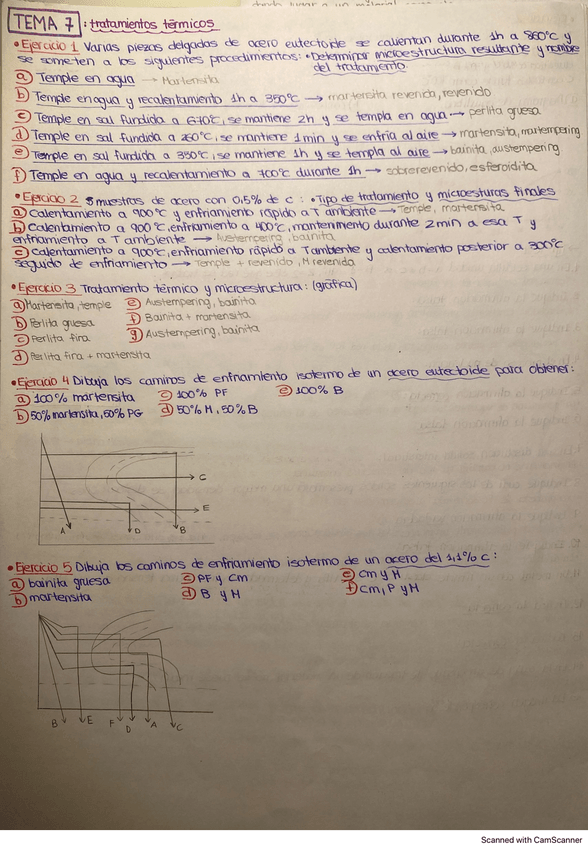 TEMA 7: tratamientos térmicos
• Ejercicio 1 Varias piezas delgadas de acero eutectoide se calientan durante 1h a 860ºC y
se someten a los siguientes procedimientos: • Determinar microestructura resultante y nombre
del tratamiento.
a) Temple en agua → Martensita
b) Temple en agua y recalentamiento 1h a 350ºC → martensita revenida, revenido
c) Temple en sal fundida a 670ºC, se mantiene 2h y se templa en agua → perlita gruesa
d) Temple en sal fundida a 260ºC, se mantiene 1 min y se enfría al aire → martensita, martempering
e) Temple en sal fundida a 350ºC, se mantiene 1h y se templa al aire → bainita, austempering
f) Temple en agua y recalentamiento a 700ºC durante 1h → sobrerevenido, esferoidita
• Ejercicio 2 muestras de acero con 0,5% de C: • Tipo de tratamiento y microesturas finales
a) Calentamiento a 900ºC y enfriamiento rápido a T ambiente → Temple, martensita
b) Calentamiento a 900ºC, enfriamiento a 400ºC, mantenimiento durante 2min a esa T y
enfriamiento a T ambiente → Austempering, bainita
c) Calentamiento a 900ºC, enfriamiento rápido a T ambiente y calentamiento posterior a 300ºC
seguido de enfriamiento → Temple + revenido, M revenida
• Ejercicio 3 Tratamiento térmico y microestructura: (gráfica)
a) Martensita, temple e) Austempering, bainita
b) Perlita gruesa f) Bainita + martensita
c) Perlita fina g) Austempering, bainita
d) Perlita fina + martensita
• Ejercicio 4 Dibuja los caminos de enfriamiento isotermo de un acero eutectoide para obtener:
a) 100% martensita c) 100% PF e) 100% B
b) 50% martensita, 50% PG d) 50% M, 50% B
C
E
A D B
• Ejercicio 5 Dibuja los caminos de enfriamiento isotermo de un acero del 1,1% C:
a) bainita gruesa c) PF y Cm e) Cm y M
b) martensita d) B y M f) Cm, P y M
B E F D A C
Scanned with CamScanner